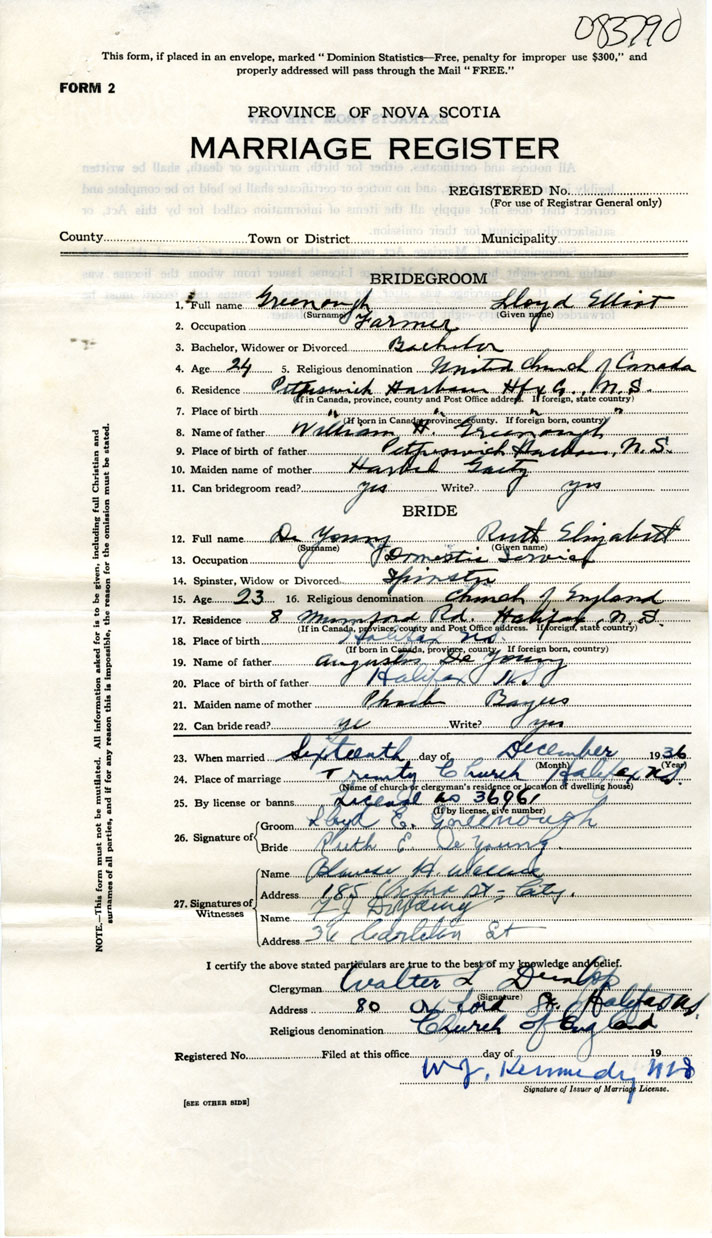 083790
This form, if placed in an envelope, marked “Dominion Statistics—Free, penalty for improper use $300,” and
properly addressed will pass through the Mail “FREE.”
FORM 2
PROVINCE OF NOVA SCOTIA
MARRIAGE REGISTER
REGISTERED No.
(For use of Registrar General only)
County Town or District Municipality
BRIDEGROOM
1. Full name Greenough Lloyd Elliot
(Surname) (Given name)
2. Occupation Farmer
3. Bachelor, Widower or Divorced Bachelor
4. Age 24 5. Religious denomination United Church of Canada
6. Residence Petpeswick Harbour Hfx Co., N.S.
(If in Canada, province, county and Post Office address. If foreign, state country)
7. Place of birth " " "
(If born in Canada, province, county. If foreign born, country)
8. Name of father William H. Greenough
9. Place of birth of father Petpeswick Harbour, N.S.
10. Maiden name of mother Gaetz
11. Can bridegroom read? yes Write? yes
BRIDE
12. Full name De Young Ruth Elizabeth
(Surname) (Given name)
13. Occupation Domestic Service
14. Spinster, Widow or Divorced Spinster
15. Age 23 16. Religious denomination Church of England
17. Residence 8 Mumford Rd. Halifax, N.S.
(If in Canada, province, county and Post Office address. If foreign, state country)
18. Place of birth Halifax N.S.
(If born in Canada, province, county. If foreign born, country)
19. Name of father Augustus De Young
20. Place of birth of father Halifax N.S.
21. Maiden name of mother
22. Can bride read? yes Write? yes
23. When married Sixteenth day of December 1936
(Month) (Year)
24. Place of marriage Trinity Church Halifax N.S.
(Name of church or clergyman's residence or location of dwelling house)
25. By license or banns License No 36961
(If by license, give number)
26. Signature of
Groom Lloyd E. Greenough
Bride Ruth E. De Young
27. Signatures of Witnesses
Name H. Wallace
Address 185 Oxford St - City.
Name DeYoung
Address 36 Carleton St
I certify the above stated particulars are true to the best of my knowledge and belief.
Clergyman Walter L Dunlop
(Signature)
Address 80 Oxford St. Halifax N.S.
Religious denomination Church of England
Registered No. Filed at this office day of 19
W. J. Kennedy
Signature of Issuer of Marriage License.
[SEE OTHER SIDE]
NOTE.—This form must not be mutilated. All information asked for is to be given, including full Christian and
surnames of all parties, and if for any reason this is impossible, the reason for the omission must be stated.